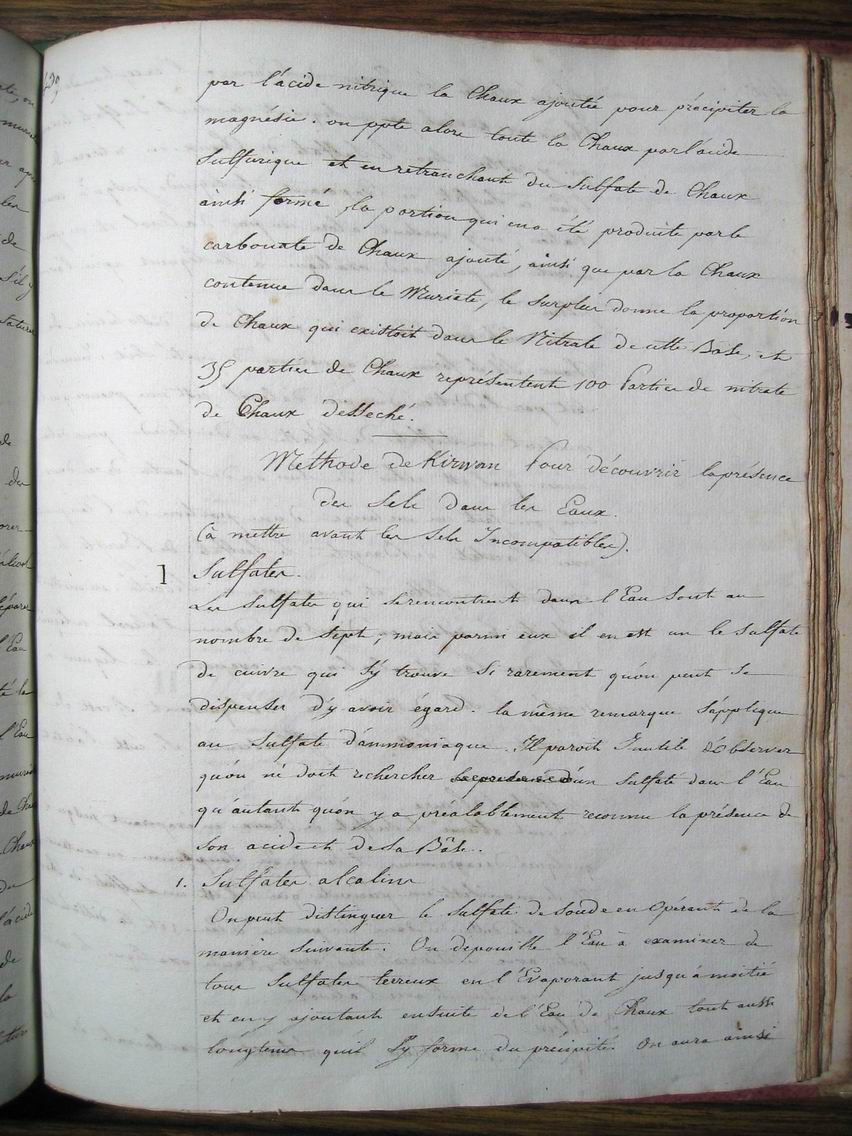 par l'acide nitrique la Chaux ajoutée pour précipiter la
magnésie. on ppte alors toute la Chaux par l'acide
Sulfurique et en retranchant du Sulfate de Chaux
ainsi formé, la portion qui en a été produite par le
carbonate de Chaux ajouté, ainsi que par la Chaux
contenue dans le Muriate, le surplus donne la proportion
de Chaux qui existoit dans le Nitrate de cette Base, et
35 parties de Chaux représentent 100 parties de nitrate
de Chaux desseché.
Methode de Kirwan Pour découvrir la présence
des Sels dans les Eaux.
(à mettre avant les Sels Incompatibles).
1 Sulfates.
Les Sulfates qui se rencontrent dans l'Eau sont au
nombre de Sept, mais parmi eux il en est un le Sulfate
de cuivre qui s'y trouve si rarement qu'on peut se
dispenser d'y avoir égard. la même remarque s'applique
au Sulfate d'ammoniaque. Il paroit Inutile d'Observer
qu'on ne doit rechercher la présence d'un sulfate dans l'Eau
qu'autant qu'on y a préalablement reconnu la présence de
son acide et de sa Bâse.
1. Sulfates alcalins
On peut distinguer le Sulfate de Soude en Opérant de la
manière suivante. On depouille l'Eau à examiner de
tous Sulfates terreux en l'Evaporant jusqu'à moitié
et en y ajoutant ensuite de l'Eau de Chaux tant aussi
longtems quil s'y forme du précipité. On aura ainsi